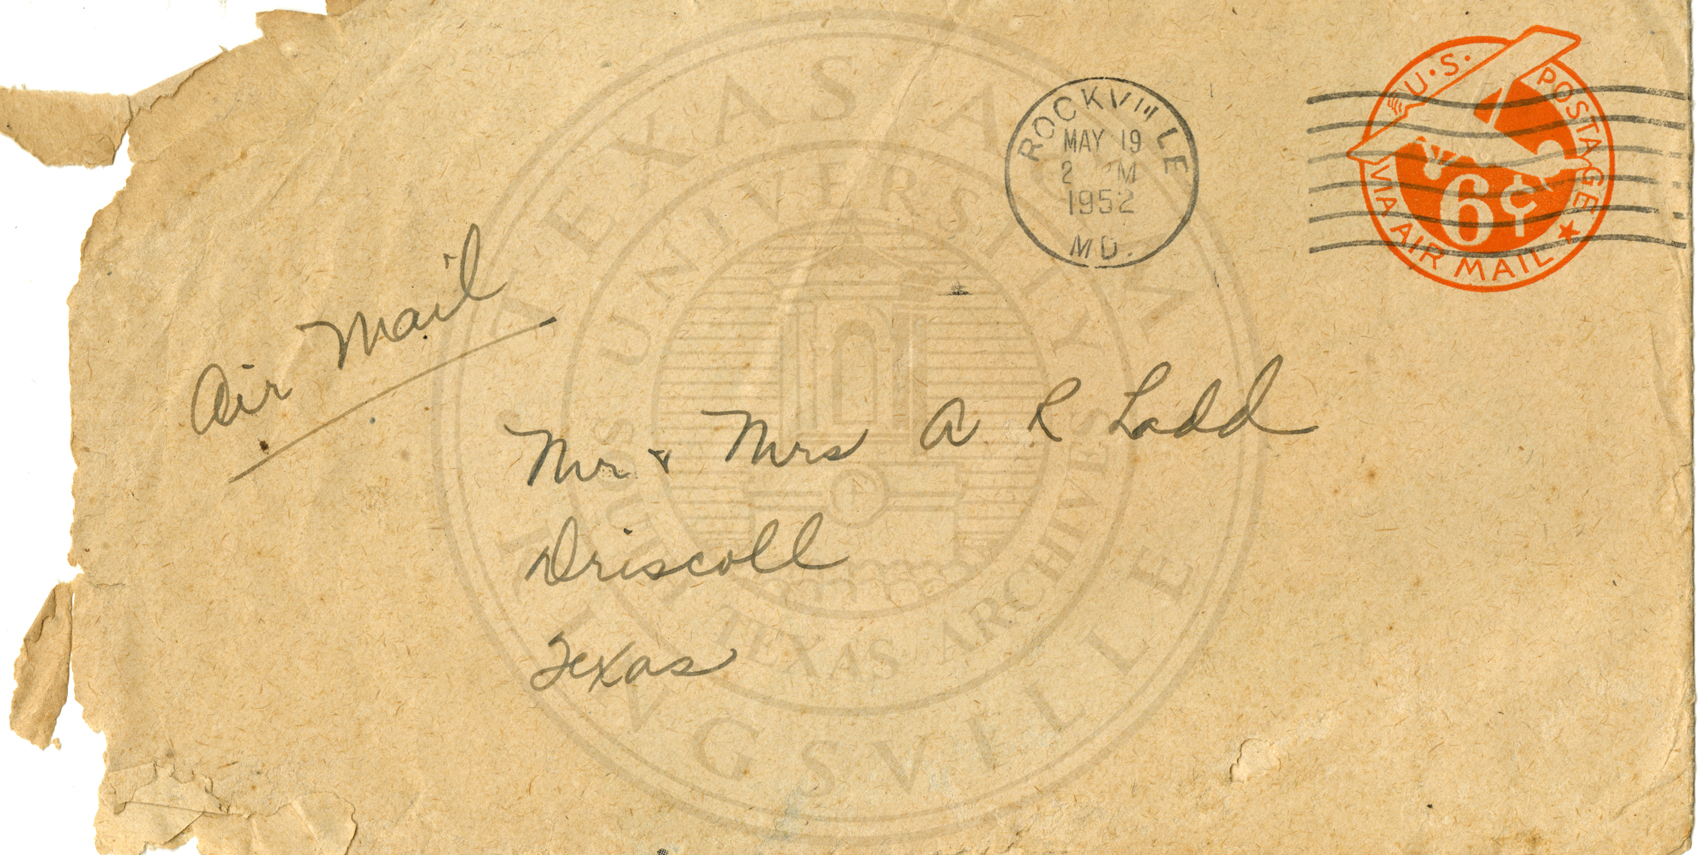 U.S. POSTAGE
VIA AIR MAIL
6¢
ROCKVILLE
MAY 19
2 M
1952
MD.
Air Mail
Mr & Mrs A R Ladd
Driscoll
Texas
TEXAS A&M UNIVERSITY
KINGSVILLE
SOUTH TEXAS ARCHIVES